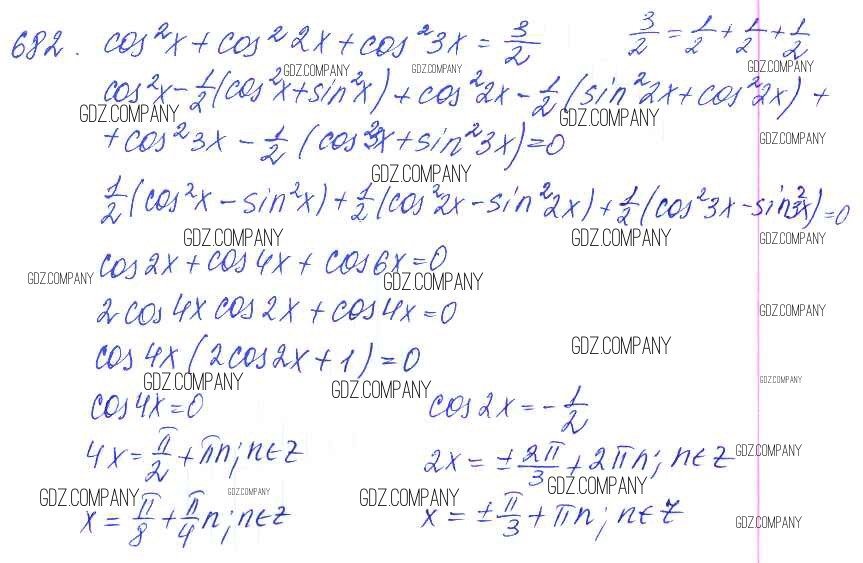 682. cos²x + cos²2x + cos²3x = 3/2    3/2 = 1/2 + 1/2 + 1/2
GDZ.COMPANY GDZ.COMPANY GDZ.COMPANY
cos²x - 1/2 (cos²x + sin²x) + cos²2x - 1/2 (sin²2x + cos²2x) +
GDZ.COMPANY GDZ.COMPANY
+ cos²3x - 1/2 (cos²3x + sin²3x) = 0
GDZ.COMPANY
GDZ.COMPANY
1/2 (cos²x - sin²x) + 1/2 (cos²2x - sin²2x) + 1/2 (cos²3x - sin²3x) = 0
GDZ.COMPANY GDZ.COMPANY GDZ.COMPANY
cos2x + cos4x + cos6x = 0
GDZ.COMPANY GDZ.COMPANY
2cos4x cos2x + cos4x = 0
GDZ.COMPANY
cos4x (2cos2x + 1) = 0
GDZ.COMPANY
GDZ.COMPANY GDZ.COMPANY GDZ.COMPANY
cos4x = 0    cos2x = - 1/2
4x = π/2 + πn; n∈Z    2x = ± 2π/3 + 2πn; n∈Z
GDZ.COMPANY
GDZ.COMPANY GDZ.COMPANY GDZ.COMPANY GDZ.COMPANY
x = π/8 + π/4 n; n∈Z    x = ± π/3 + πn; n∈Z
GDZ.COMPANY